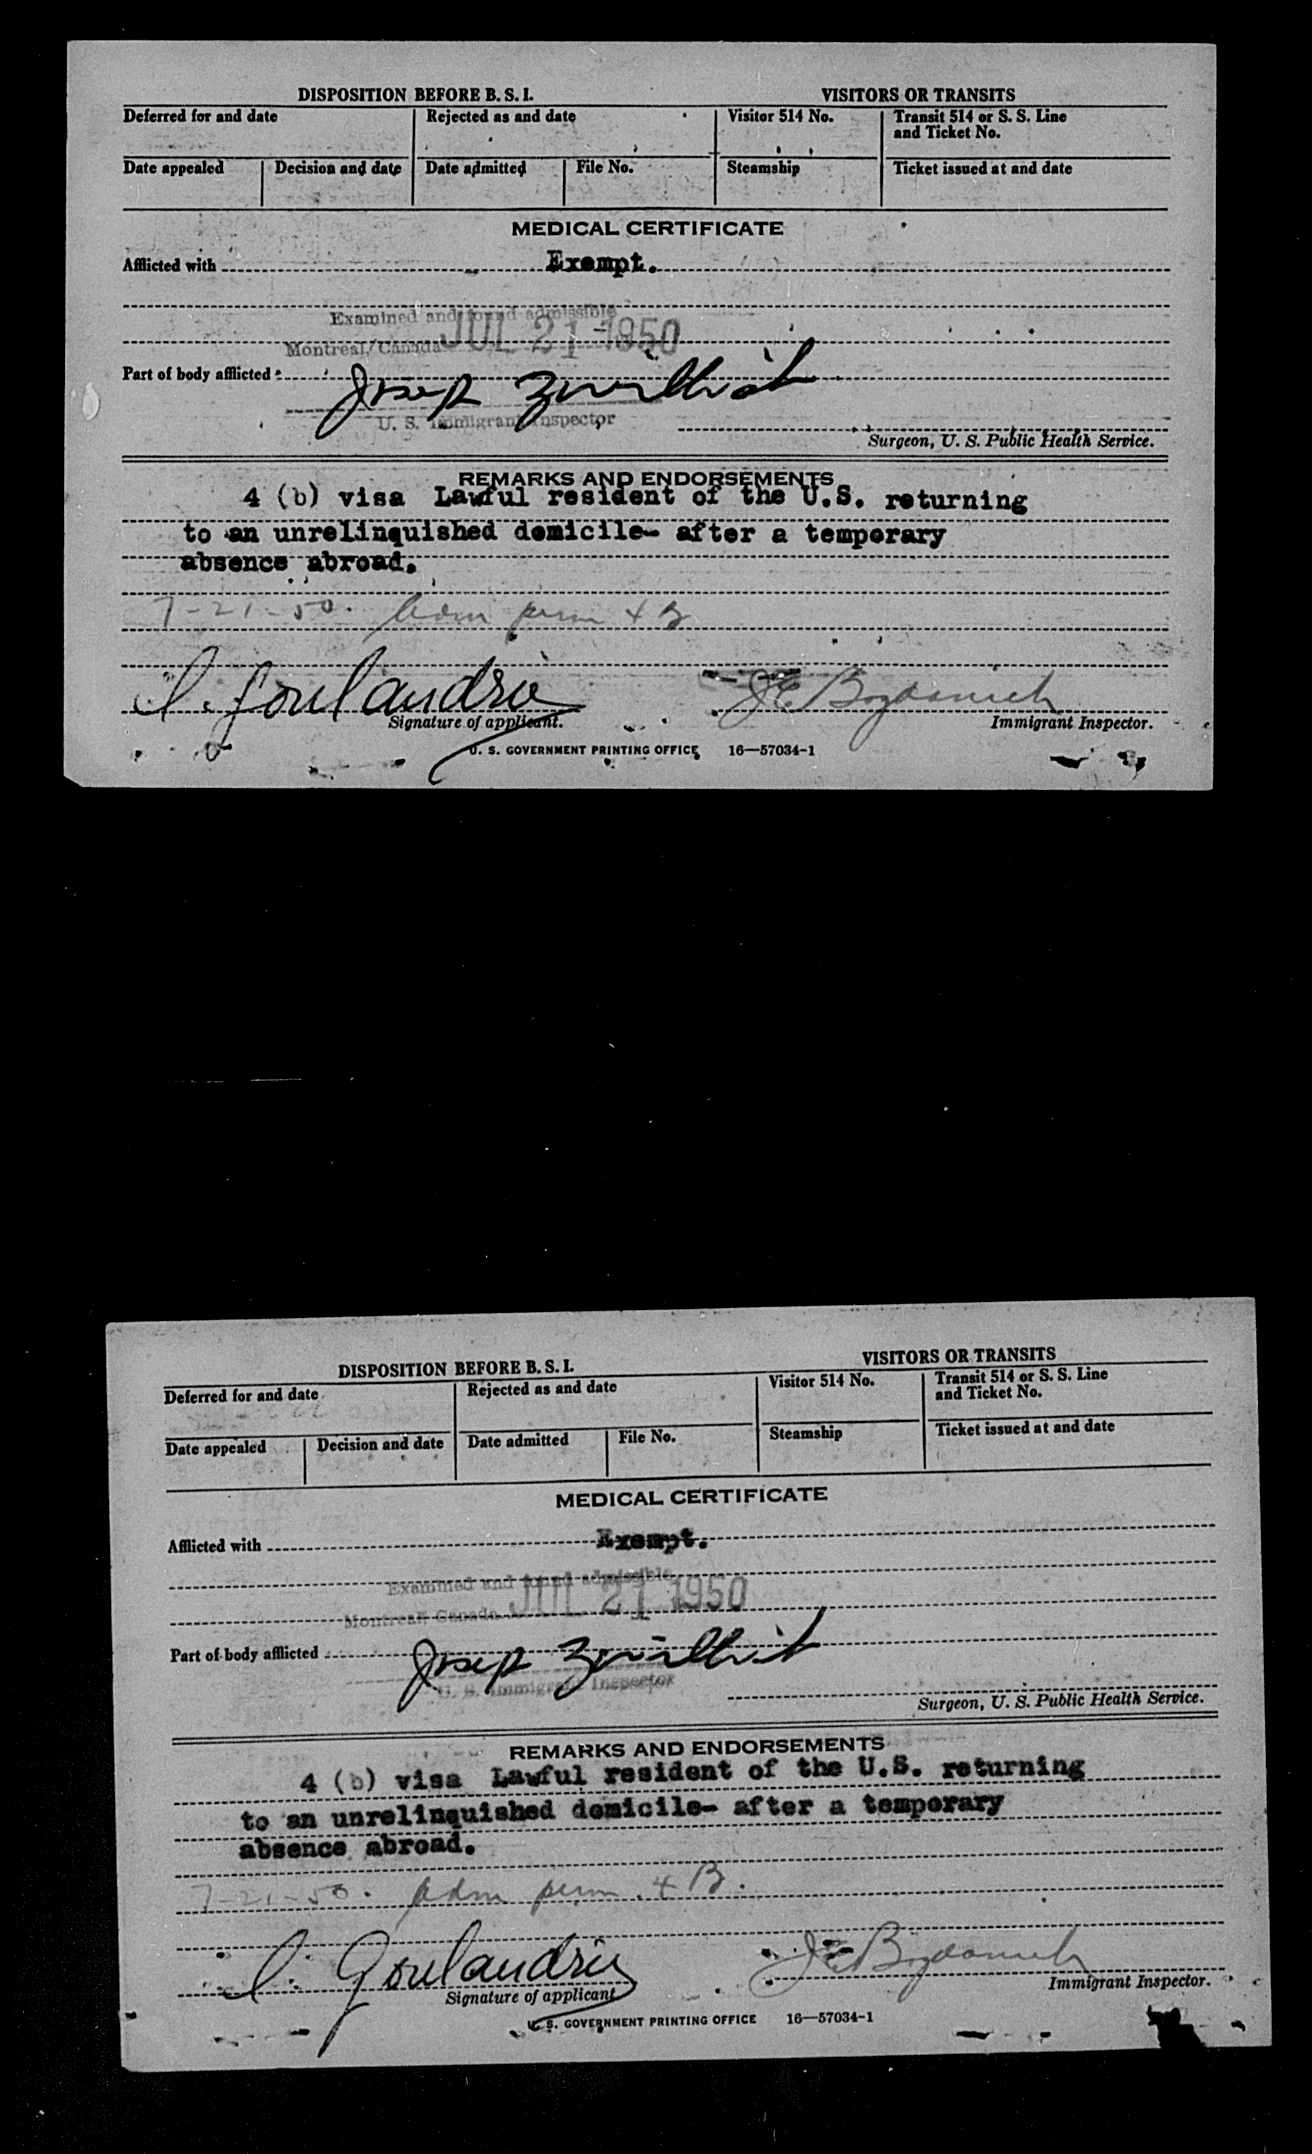 DISPOSITION BEFORE B. S. I.
VISITORS OR TRANSITS
Deferred for and date
Rejected as and date
Visitor 514 No.
Transit 514 or S. S. Line
and Ticket No.
Date appealed
Decision and date
Date admitted
File No.
Steamship
Ticket issued at and date
MEDICAL CERTIFICATE
Afflicted with Exempt.
Examined and found admissible
Montreal, Canada JUL 21 1950
Part of body afflicted
U. S. Immigrant Inspector
Surgeon, U. S. Public Health Service.
REMARKS AND ENDORSEMENTS
4 (b) visa Lawful resident of the U.S. returning
to an unrelinquished domicile- after a temporary
absence abroad.
7-21-50. Adm perm 4 B
Goulandris
Signature of applicant.
Immigrant Inspector.
U. S. GOVERNMENT PRINTING OFFICE 16—57034-1
DISPOSITION BEFORE B. S. I.
VISITORS OR TRANSITS
Deferred for and date
Rejected as and date
Visitor 514 No.
Transit 514 or S. S. Line
and Ticket No.
Date appealed
Decision and date
Date admitted
File No.
Steamship
Ticket issued at and date
MEDICAL CERTIFICATE
Afflicted with Exempt.
Examined and found admissible
Montreal Canada JUL 21 1950
Part of body afflicted
U. S. Immigrant Inspector
Surgeon, U. S. Public Health Service.
REMARKS AND ENDORSEMENTS
4 (b) visa Lawful resident of the U.S. returning
to an unrelinquished domicile- after a temporary
absence abroad.
7-21-50. Adm perm 4 B.
Goulandris
Signature of applicant
Immigrant Inspector.
U. S. GOVERNMENT PRINTING OFFICE 16—57034-1